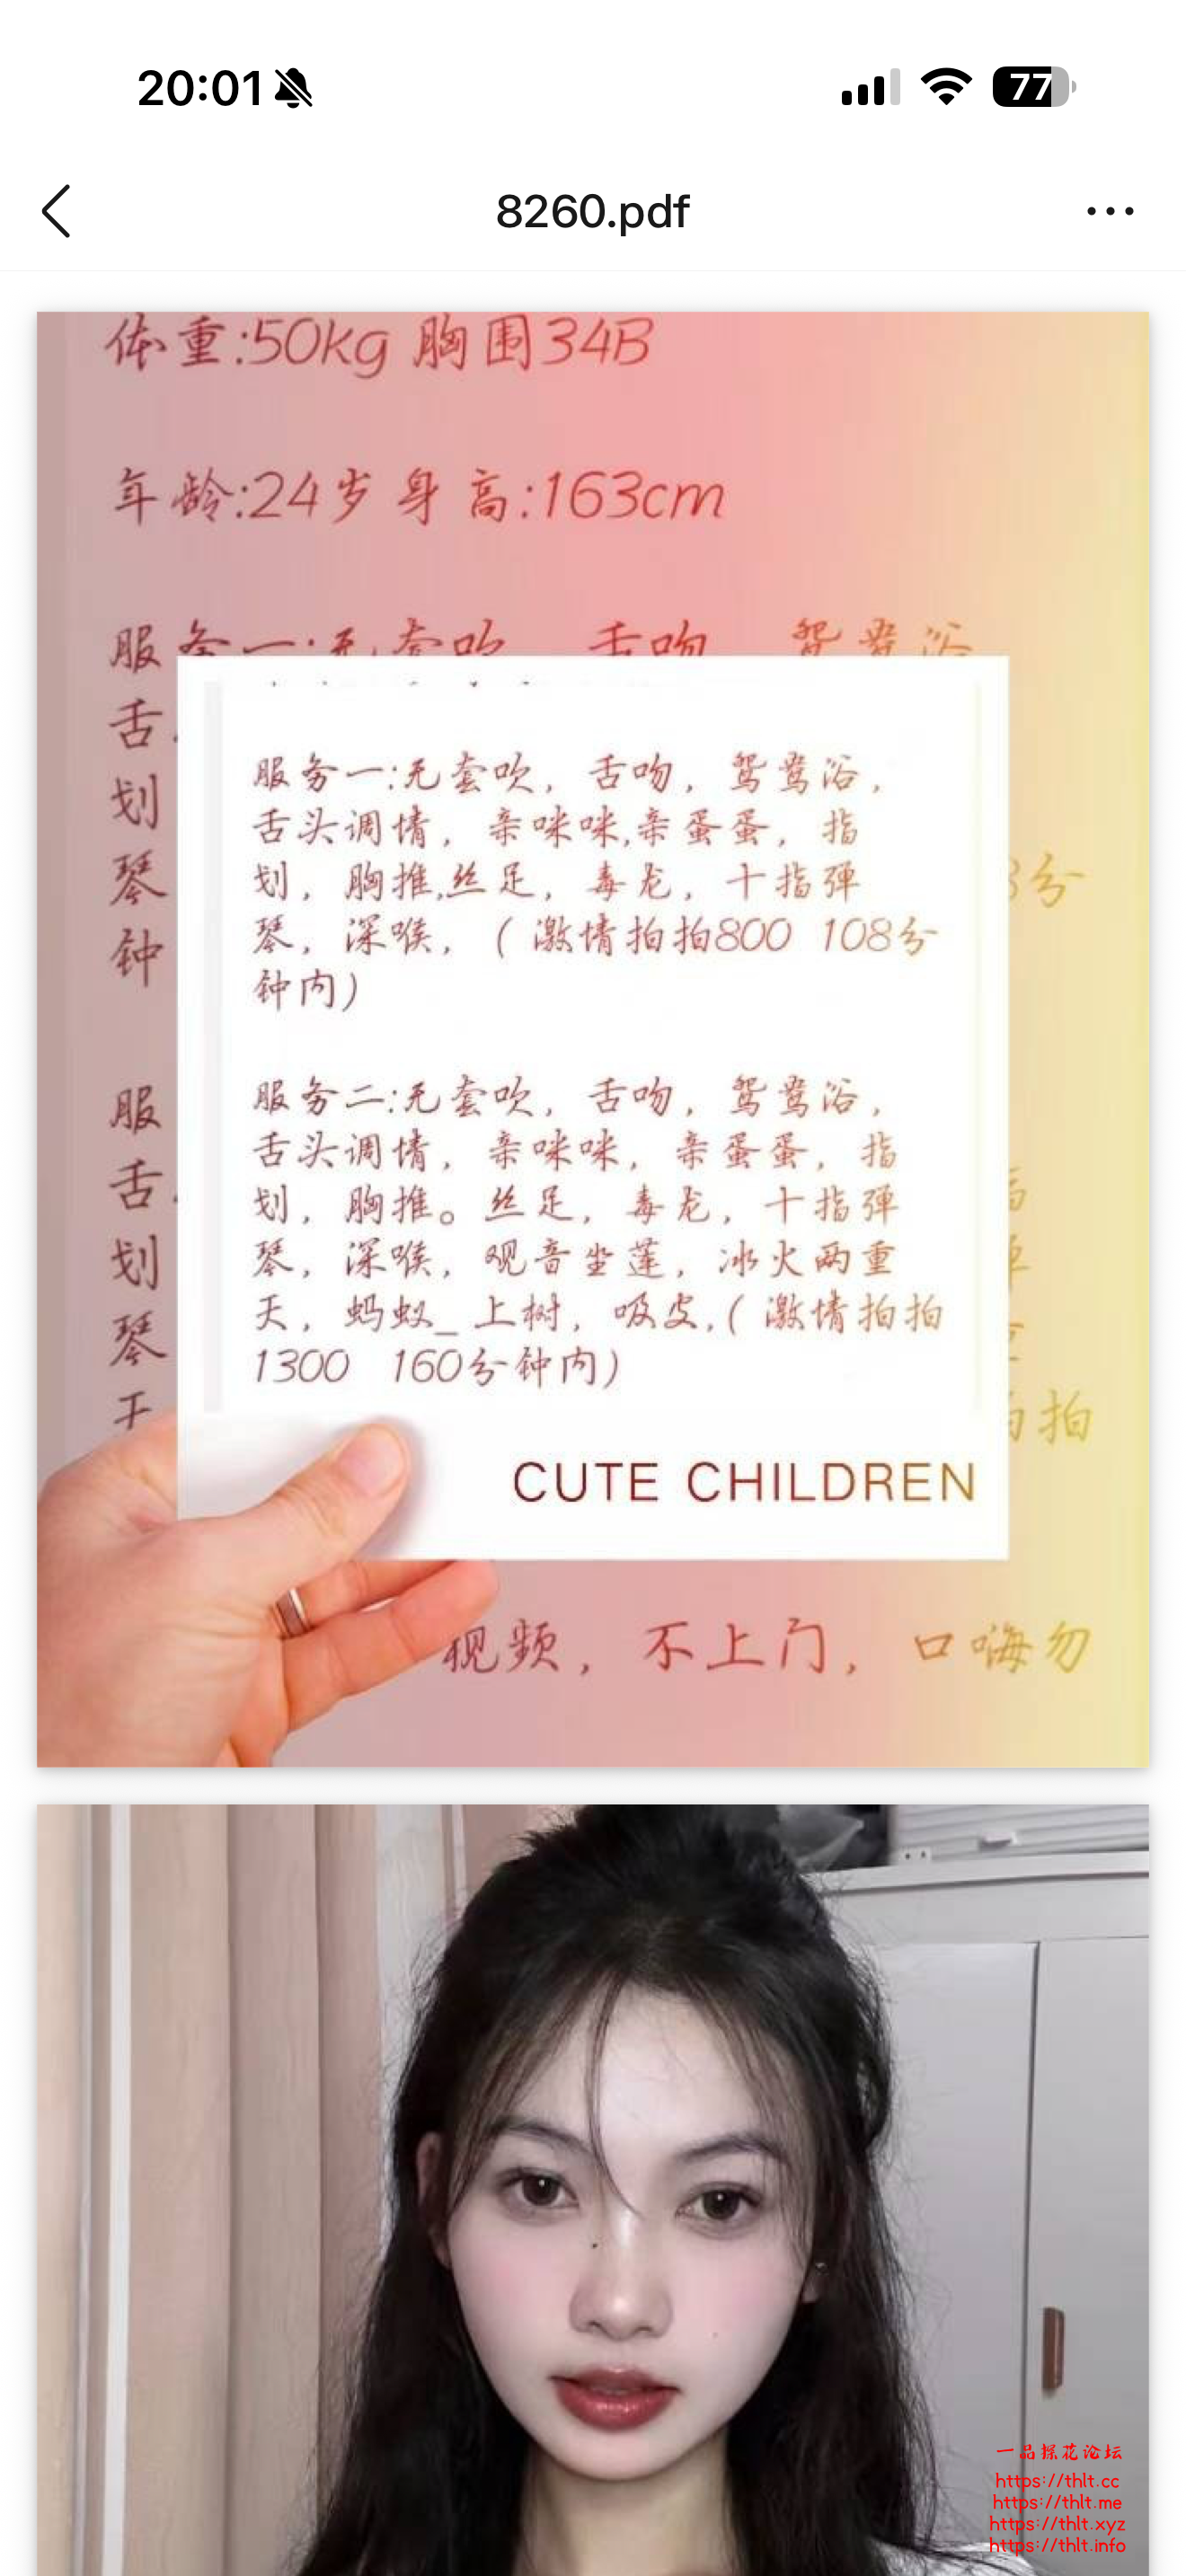 20:01
77
8260.pdf
体重:50kg 胸围34B
年龄:24岁 身高:163cm
服务一:无套吹, 舌吻, 鸳鸯浴
服务一:无套吹, 舌吻, 鸳鸯浴,
舌头调情, 亲咪咪,亲蛋蛋, 指
划, 胸推,丝足, 毒龙, 十指弹
琴, 深喉, (激情拍拍800 108分
钟内)
服务二:无套吹, 舌吻, 鸳鸯浴,
舌头调情, 亲咪咪, 亲蛋蛋, 指
划, 胸推。丝足, 毒龙, 十指弹
琴, 深喉, 观音坐莲, 冰火两重
天, 蚂蚁_上树, 吸皮,(激情拍拍
1300 160分钟内)
CUTE CHILDREN
视频, 不上门, 口嗨勿
一品探花论坛
https://thlt.cc
https://thlt.me
https://thlt.xyz
https://thlt.info